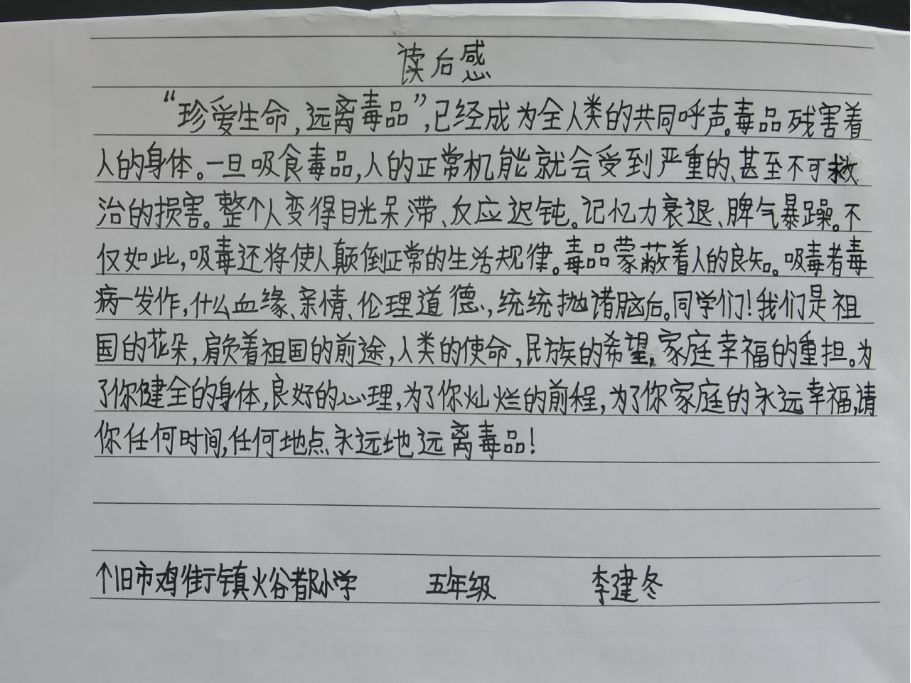 读后感
“珍爱生命,远离毒品”,已经成为全人类的共同呼声。毒品残害着
人的身体。一旦吸食毒品,人的正常机能就会受到严重的、甚至不可救
治的损害。整个人变得目光呆滞、反应迟钝。记忆力衰退、脾气暴躁。不
仅如此,吸毒还将使人颠倒正常的生活规律。毒品蒙蔽着人的良知。吸毒者毒
病一发作,什么血缘、亲情、伦理道德,统统抛诸脑后。同学们!我们是祖
国的花朵,肩负着祖国的前途,人类的使命,民族的希望,家庭幸福的重担。为
了你健全的身体,良好的心理,为了你灿烂的前程,为了你家庭的永远幸福,请
你任何时间,任何地点永远地远离毒品!
个旧市鸡街镇火谷都小学 五年级 李建冬